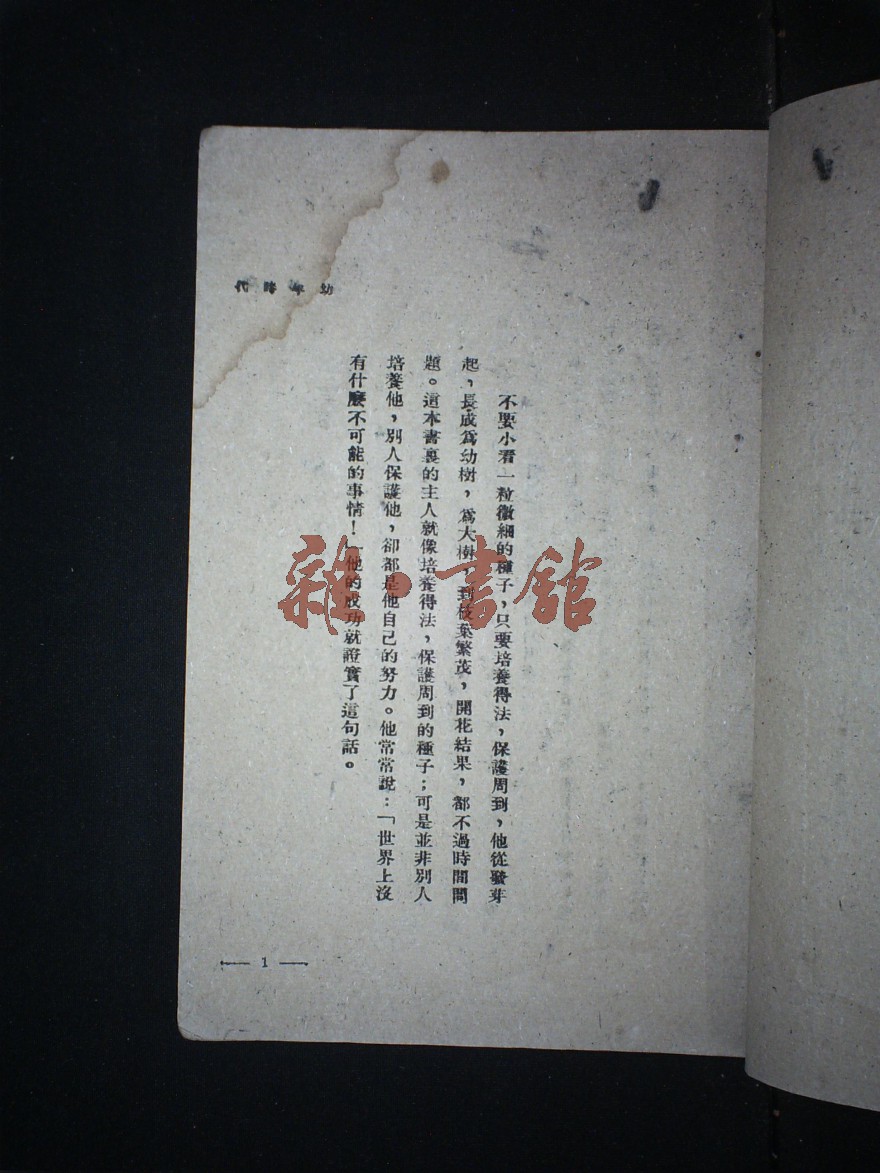 幼年時代
不要小看一粒微細的種子，只要培養得法，保護周到，他從發芽
起，長成爲幼樹，爲大樹，到枝葉繁茂，開花結果，都不過時間問
題。這本書裏的主人就像培養得法，保護周到的種子；可是並非別人
培養他，別人保護他，卻都是他自己的努力。他常常說：「世界上沒
有什麼不可能的事情！」他的成功就證實了這句話。
— 1 —
雜·書館